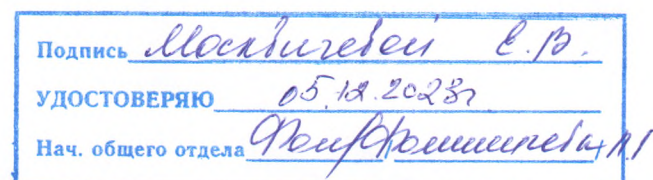 Подпись Москвичевой Е.В.
УДОСТОВЕРЯЮ 05.12.2023г
Нач. общего отдела